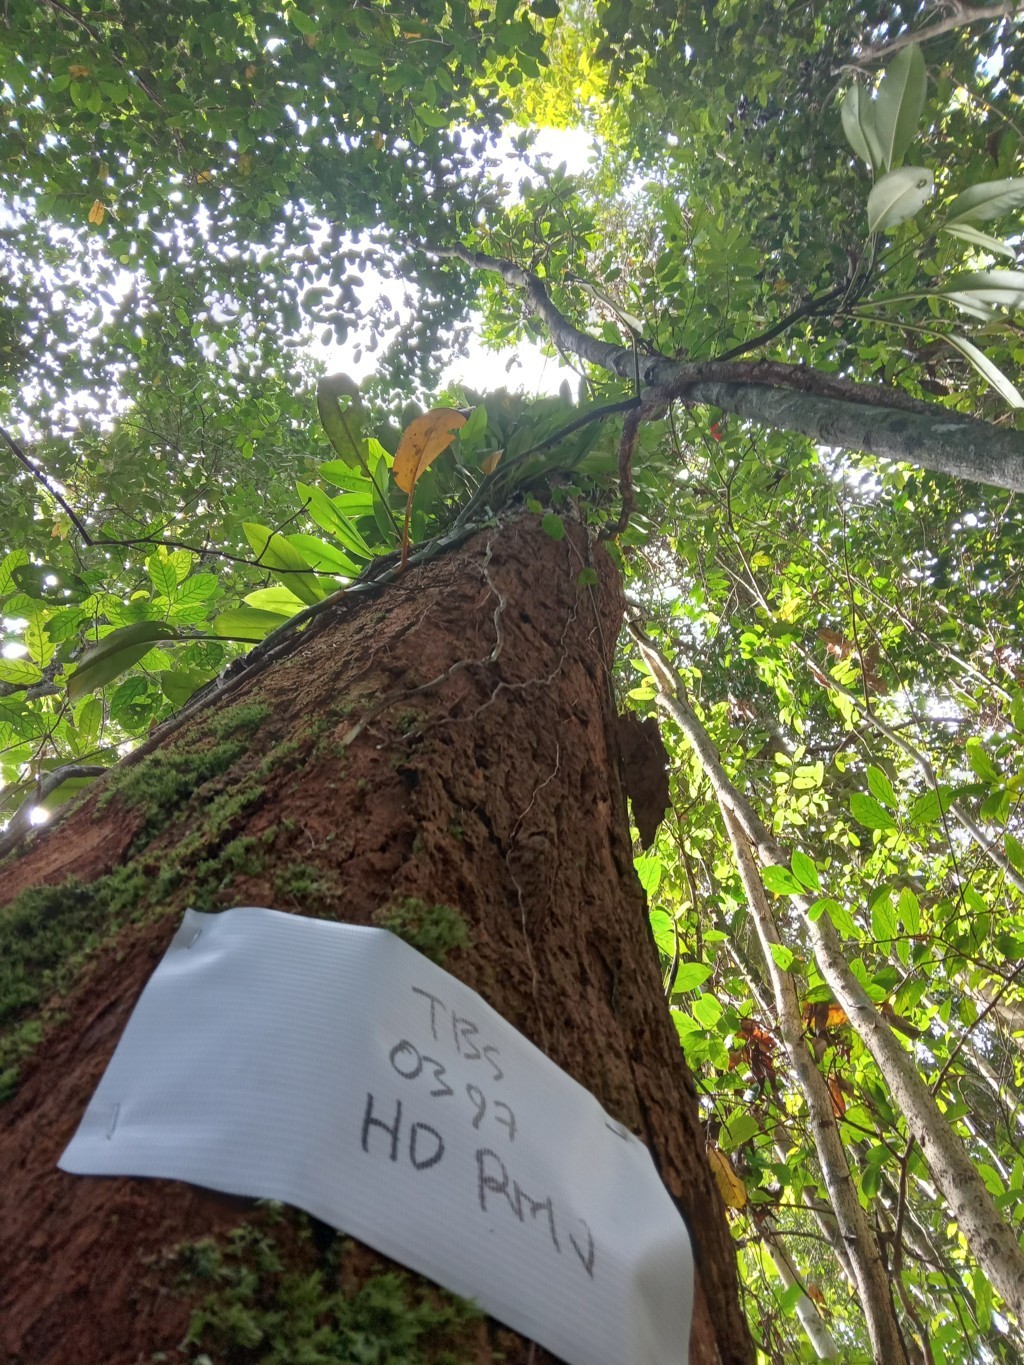 TBS
0397
HD RMJ